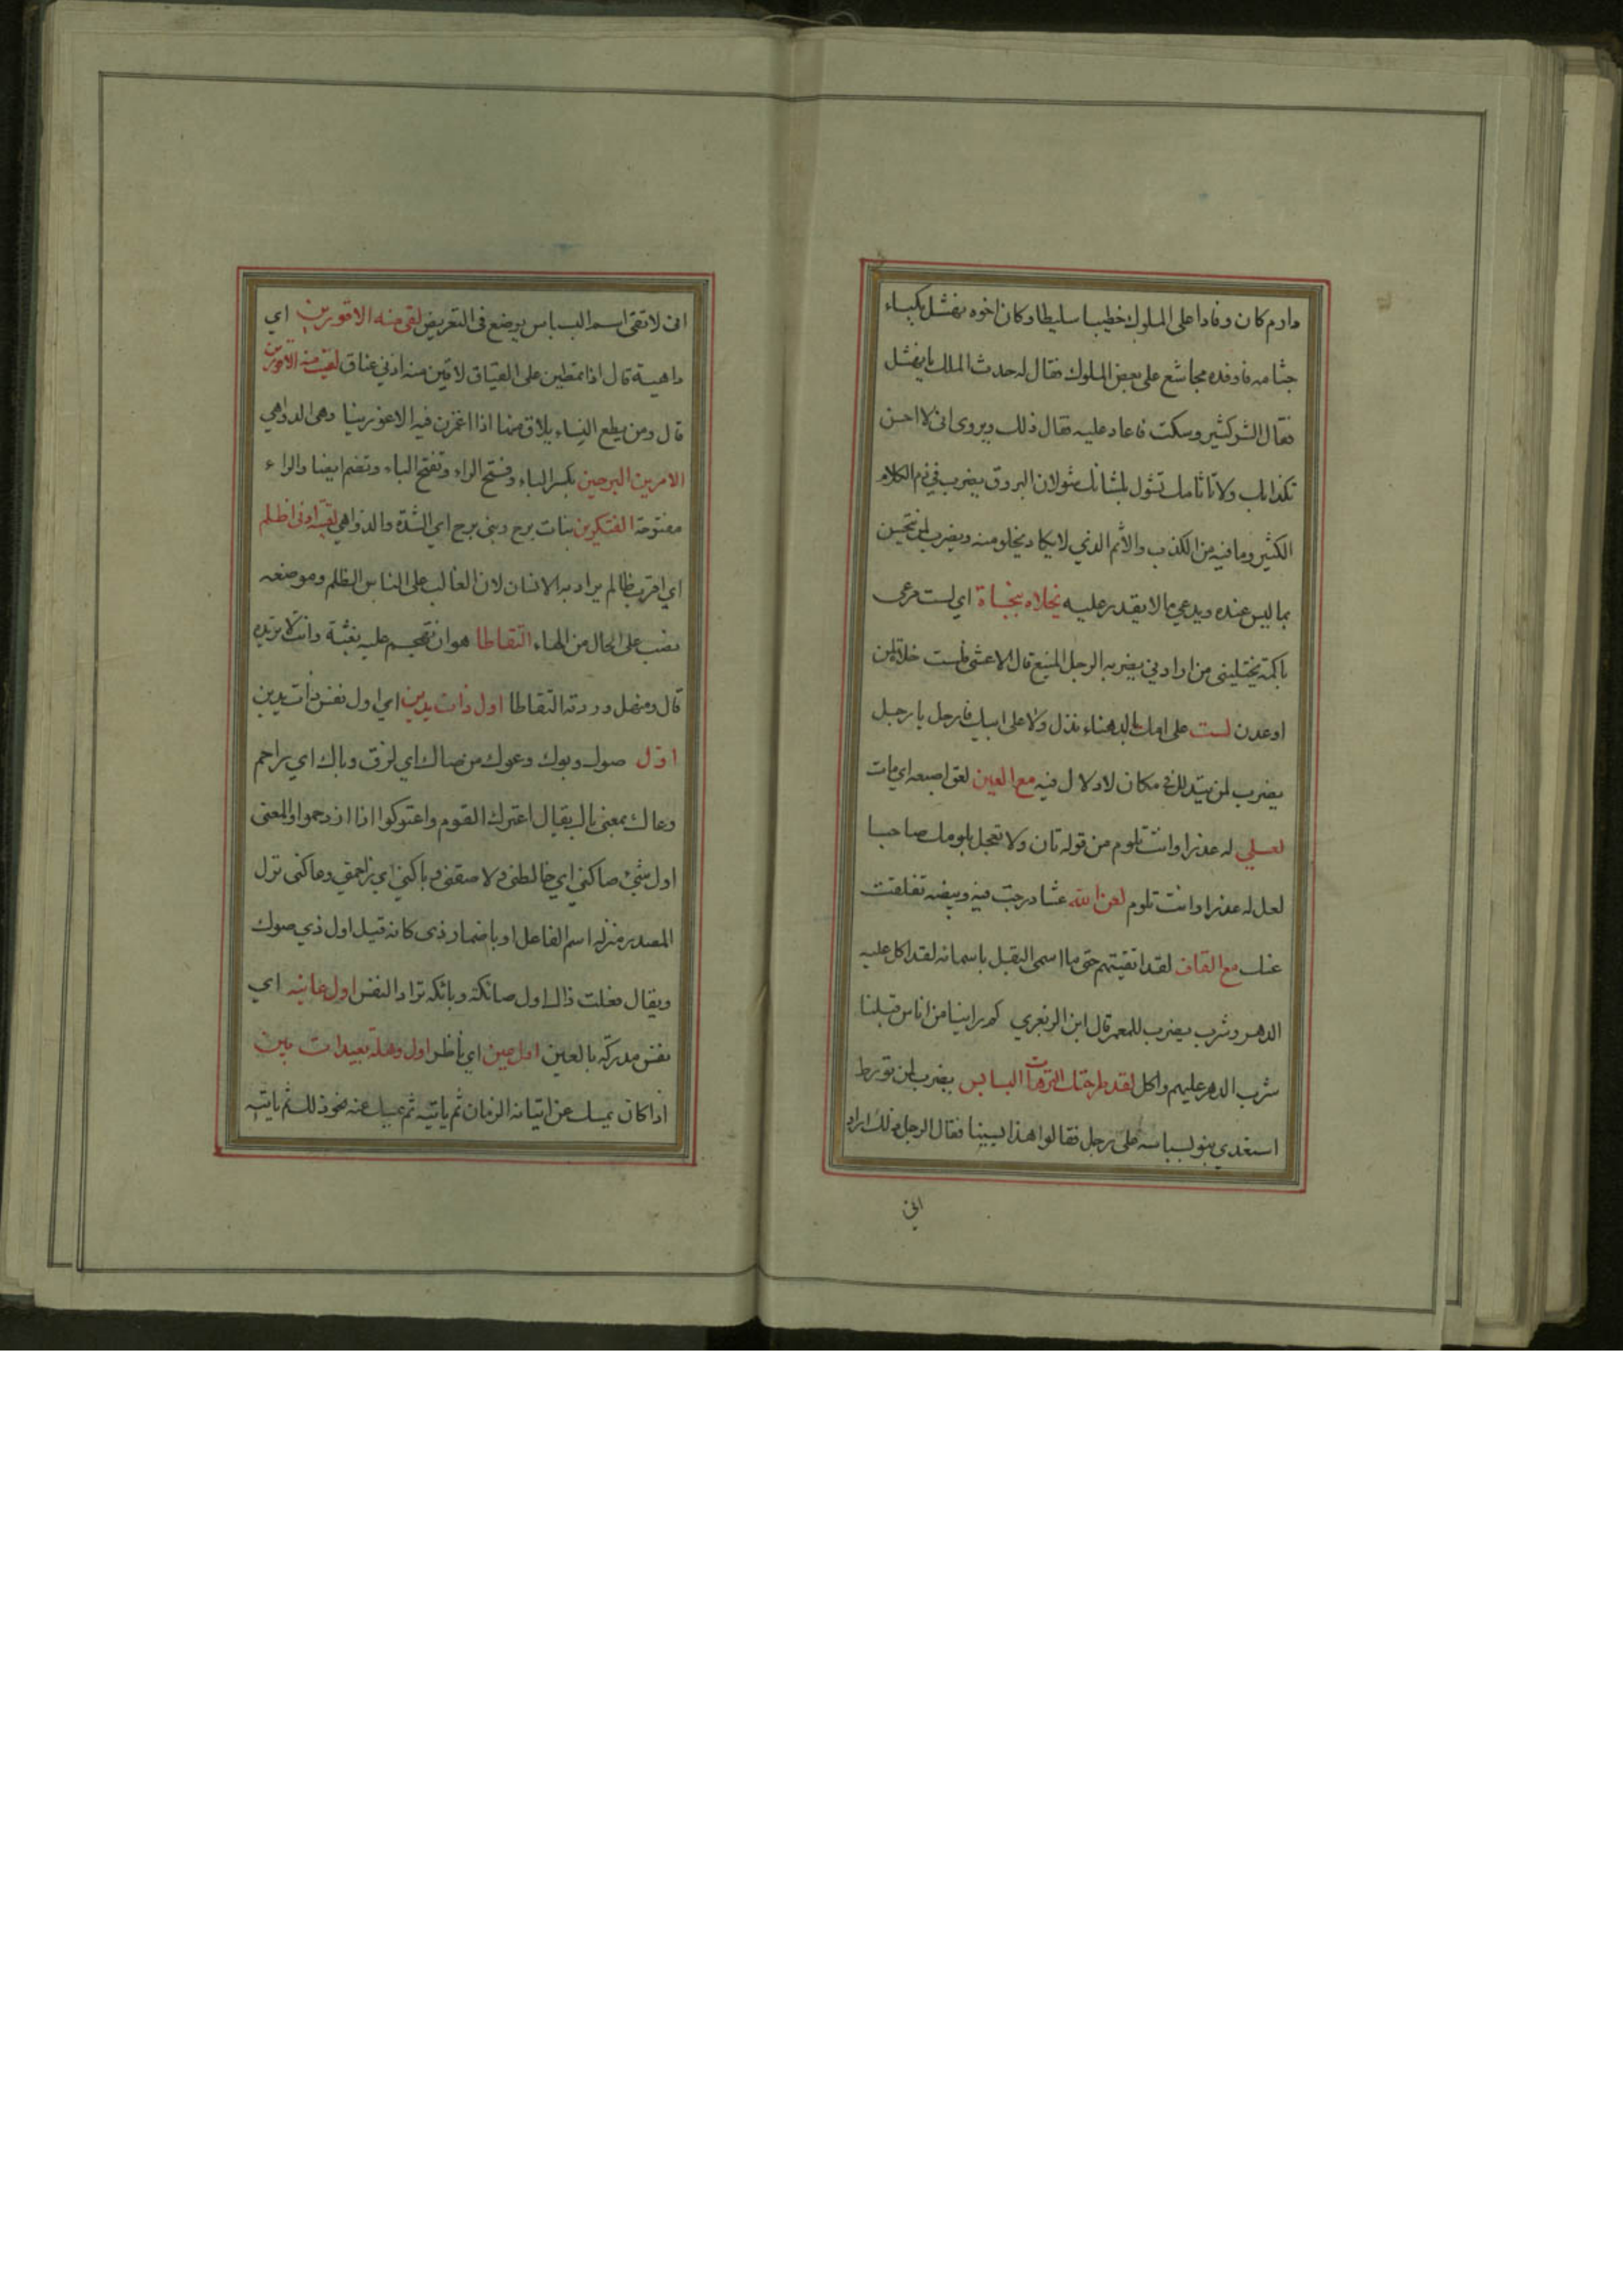 دارم كان وفادا على الملوك خطيبا سليطا وكان اخوه نهشل بكياء
جثامه فاوفده مجاشع على بعض الملوك فقال له حدث الملك يا نهشل
فقال الشر كثير وسكت فاعاد عليه فقال ذلك ويروى انى لا احسن
تكذابك ولا تاثامك تشول بلسانك شولان البروق يضرب فى ذم الكلام
الكثير وما فيه من الكذب والاثم الذي لا يكاد يخلو منه ويضرب لمن تحسن
بما ليس عنده ويدعي ما لا يقدر عليه بخلاه بنجاة اي لست مرعى
باكمة يختليني من ارادني يضربه الرجل المنيع قال الاعشى فلست خلاة لمن
اوعدن لست على امك بالدهناء تدل ولا على ابيك فارحل يا رجل
يضرب لمن يتدلل فى مكان لا دلال فيه مع العين لعق اصبعه اي مات
لعلي له عذرا وانت تلوم من قوله تان ولا تعجل بلومك صاحبا
لعل له عذرا وانت تلوم لعن الله عشا درجت فيه وبيضه تفلقت
عنك مع القاف لقد اتقيتهم حتى ما اسمى البقل باسمائه لقد اكل عليه
الدهر وشرب يضرب للمعمر قال ابن الزبعرى كم راينا من اناس قبلنا
شرب الدهر عليهم واكل لقد طرحتك الترهات البسابس يضرب لمن تورط
استعدي بنو بسباسه على رجل فقالوا هذا يسبنا فقال الرجل وذلك اراد
انى
انى لا تقى اسم البسباس يوضع فى التعريض لقى منه الاقورين اي
داهية قال اذا تمطين على القياق لاقين منه اذني عناق لقيت منه الاقورين
قال ومن يطع النساء يلاق منها اذا اغمزن فيه الاقورينا وهى الدواهي
الامرين البرحين بكسر الباء وفتح الراء وتفتح الباء وتضم ايضا والراء
مفتوحة الفتكرين بنات برح وبنى برح اي الشدة والدواهي لقيته ادنى ظلم
اي اقرب ظالم يراد به الانسان لان الغالب على الناس الظلم وموضعه
نصب على الحال من الهاء التقاطا هو ان تهجم عليه بغتة وانت لا تريده
قال ومنهل وردته التقاطا اول ذات يدين اي اول نفس ذات يدين
اول صوك وبوك وعوك من صاك اي لزق وباك اي زاحم
وعاك بمعنى باك يقال اعترك القوم واعتوكوا اذا ازدحموا والمعنى
اول شئ صاكني اي خالطنى ولاصقنى وباكني اي زاحمني وعاكنى نزل
المصدر منزلة اسم الفاعل او باضمار ذى كانه قيل اول ذي صوك
ويقال فعلت ذاك اول صائكة وبائكة تراد النفس اول عائنة اي
نفس مدركة بالعين اول عين اي ناظر اول وهلة بعيدات بين
اذا كان يمسك عن اتيانه الزمان ثم ياتيه ثم يمسك عنه نحو ذلك ثم ياتيه